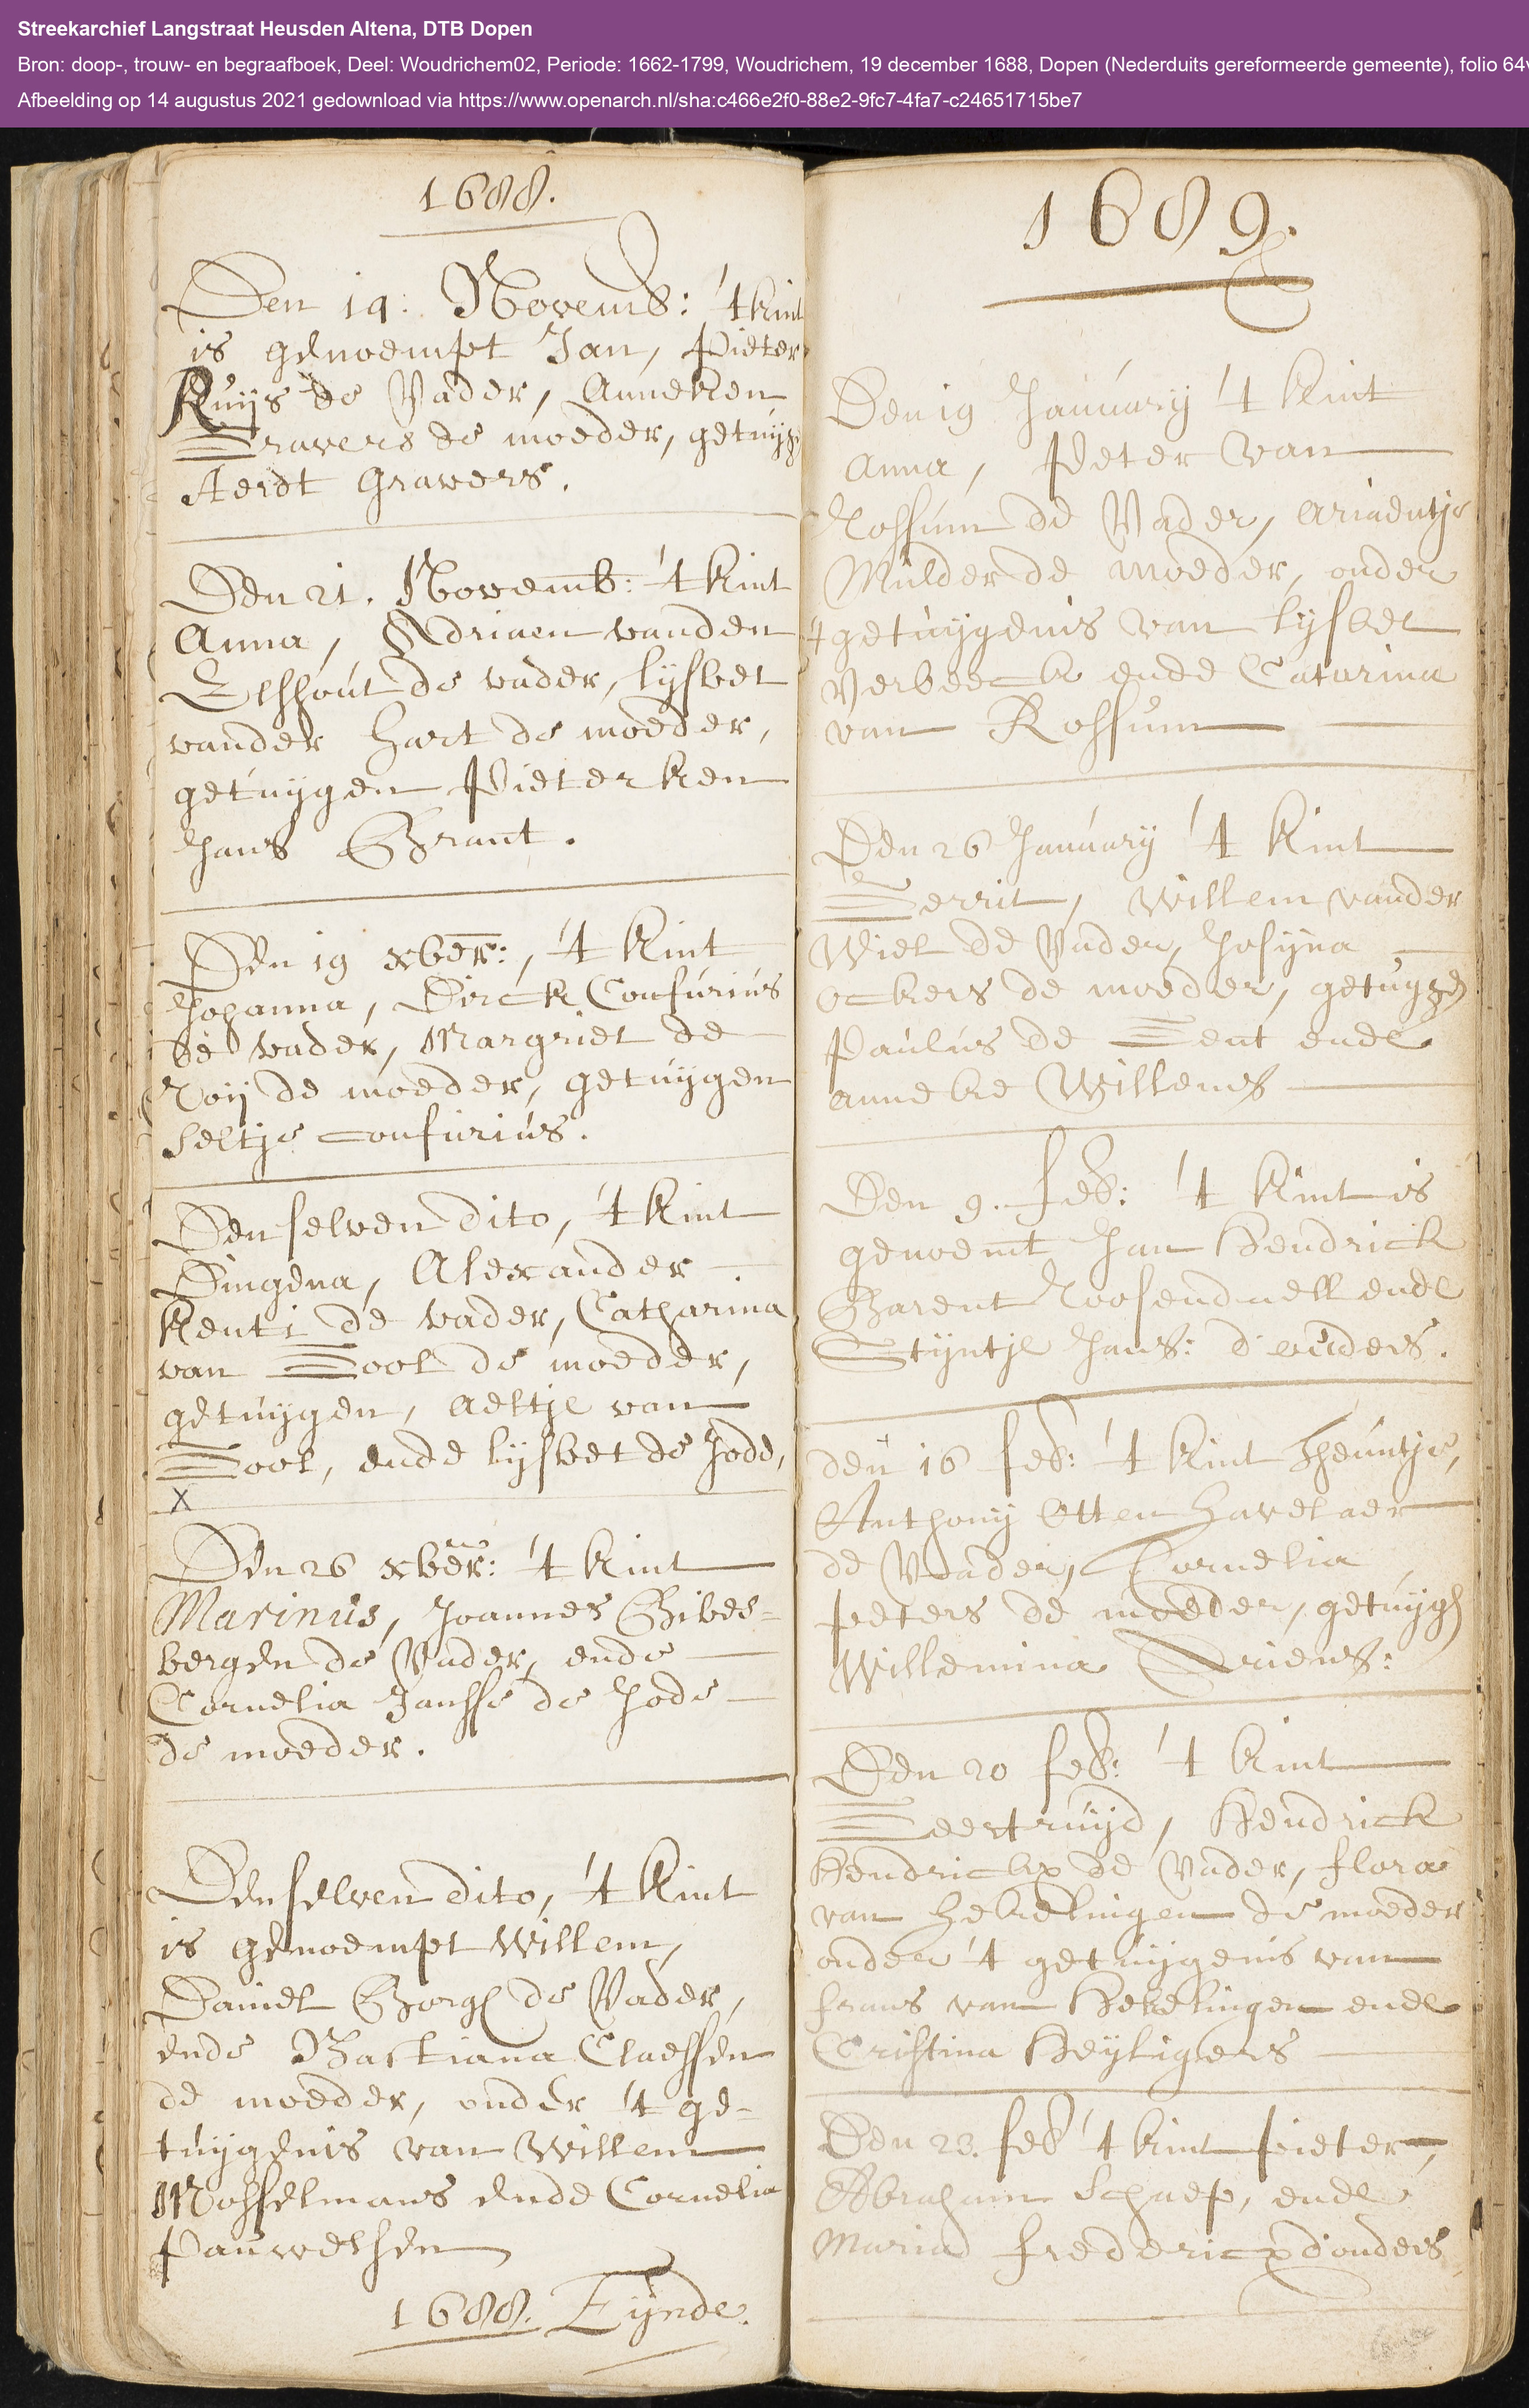 Streekarchief Langstraat Heusden Altena, DTB Dopen
Bron: doop-, trouw- en begraafboek, Deel: Woudrichem02, Periode: 1662-1799, Woudrichem, 19 december 1688, Dopen (Nederduits gereformeerde gemeente), folio 64v
Afbeelding op 14 augustus 2021 gedownload via https://www.openarch.nl/sha:c466e2f0-88e2-9fc7-4fa7-c24651715be7
1688.
Den 19: Novemb: 't kint
is genoempt Jan, Pieter
Kuijs de Vader, Anneken
Gravers de moeder, getuijg
Aerdt Gravers.
Den 21. Novemb: 't kint
Anna, Adriaen vanden
Elshout de vader, lijsbet
vander Hart de moeder,
getuijgen Pieterken
Jans Brant.
Den 19 xber:, 't kint
Johanna, Dirck Confurius
de vader, Margriet de
Roij de moeder, getuijgen
Seltje confurius.
Den selven dito, 't kint
Dingena, Alexander
Kenti de vader, Catharina
van Gool de moeder,
getuijgen, Aeltje van
Gool, ende lijsbet de Jode,
X
Den 26 xber: 't kint
Marinus, Joannes Bibes-
bergen de Vader, ende
Cornelia Jansse de Jode
de moeder.
Den selven dito, 't kint
is genoempt Willem,
Daniel de Vader,
ende Bastiana Claessen
de moeder, onder 't ge-
tuijgenis van Willem
Mosselmans ende Cornelia
Pauwelsen
1688. Eynde.
1689.
Den 19 January 't kint
Anna, Peter van
Rossum de Vader, Ariaentje
Mulder de moeder, onder
't getuijgenis van lijsbet
Verbeeck ende Catarina
van Rossum
Den 26 January 't kint
Gerrit, Willem vander
Wiel de Vader, Josijna
Ockers de moeder, getuygen
Paulus de Gent ende
anneke Willems
Den 9. feb: 't kint is
genoemt Jan Hendrick
Barent Roosendaell ende
Stijntje Jans: d'ouders.
den 16 feb: 't kint Theuntje,
Anthonij Otten Havelaer
de Vader, Cornelia
peters de moeder, getuijg
Willemina Driens:
Den 20 feb: 't kint
Geertruijd, Hendrick
Hendrickx de Vader, flora
van Hekelingen de moeder
onder 't getuijgenis van
frans van Hekelingen ende
Cristina Heyligers
Den 23. feb 't kint pieter,
Abraham Schaep, ende
Maria fredericx d'ouders